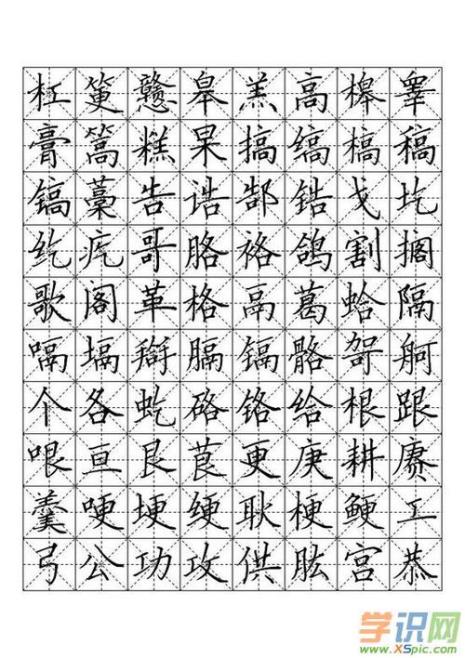 杠筻戆皋羔高槔睾
膏篙糕杲搞缟槁稿
镐藁告诰郜锆戈圪
纥疙哥胳袼鸽割搁
歌阁革格鬲葛蛤隔
嗝塥搿膈镉骼哿舸
个各虼硌铬给根跟
哏亘艮茛更庚耕赓
羹哽埂绠耿梗鲠工
弓公功攻供肱宫恭
学识网
www.XSpic.com